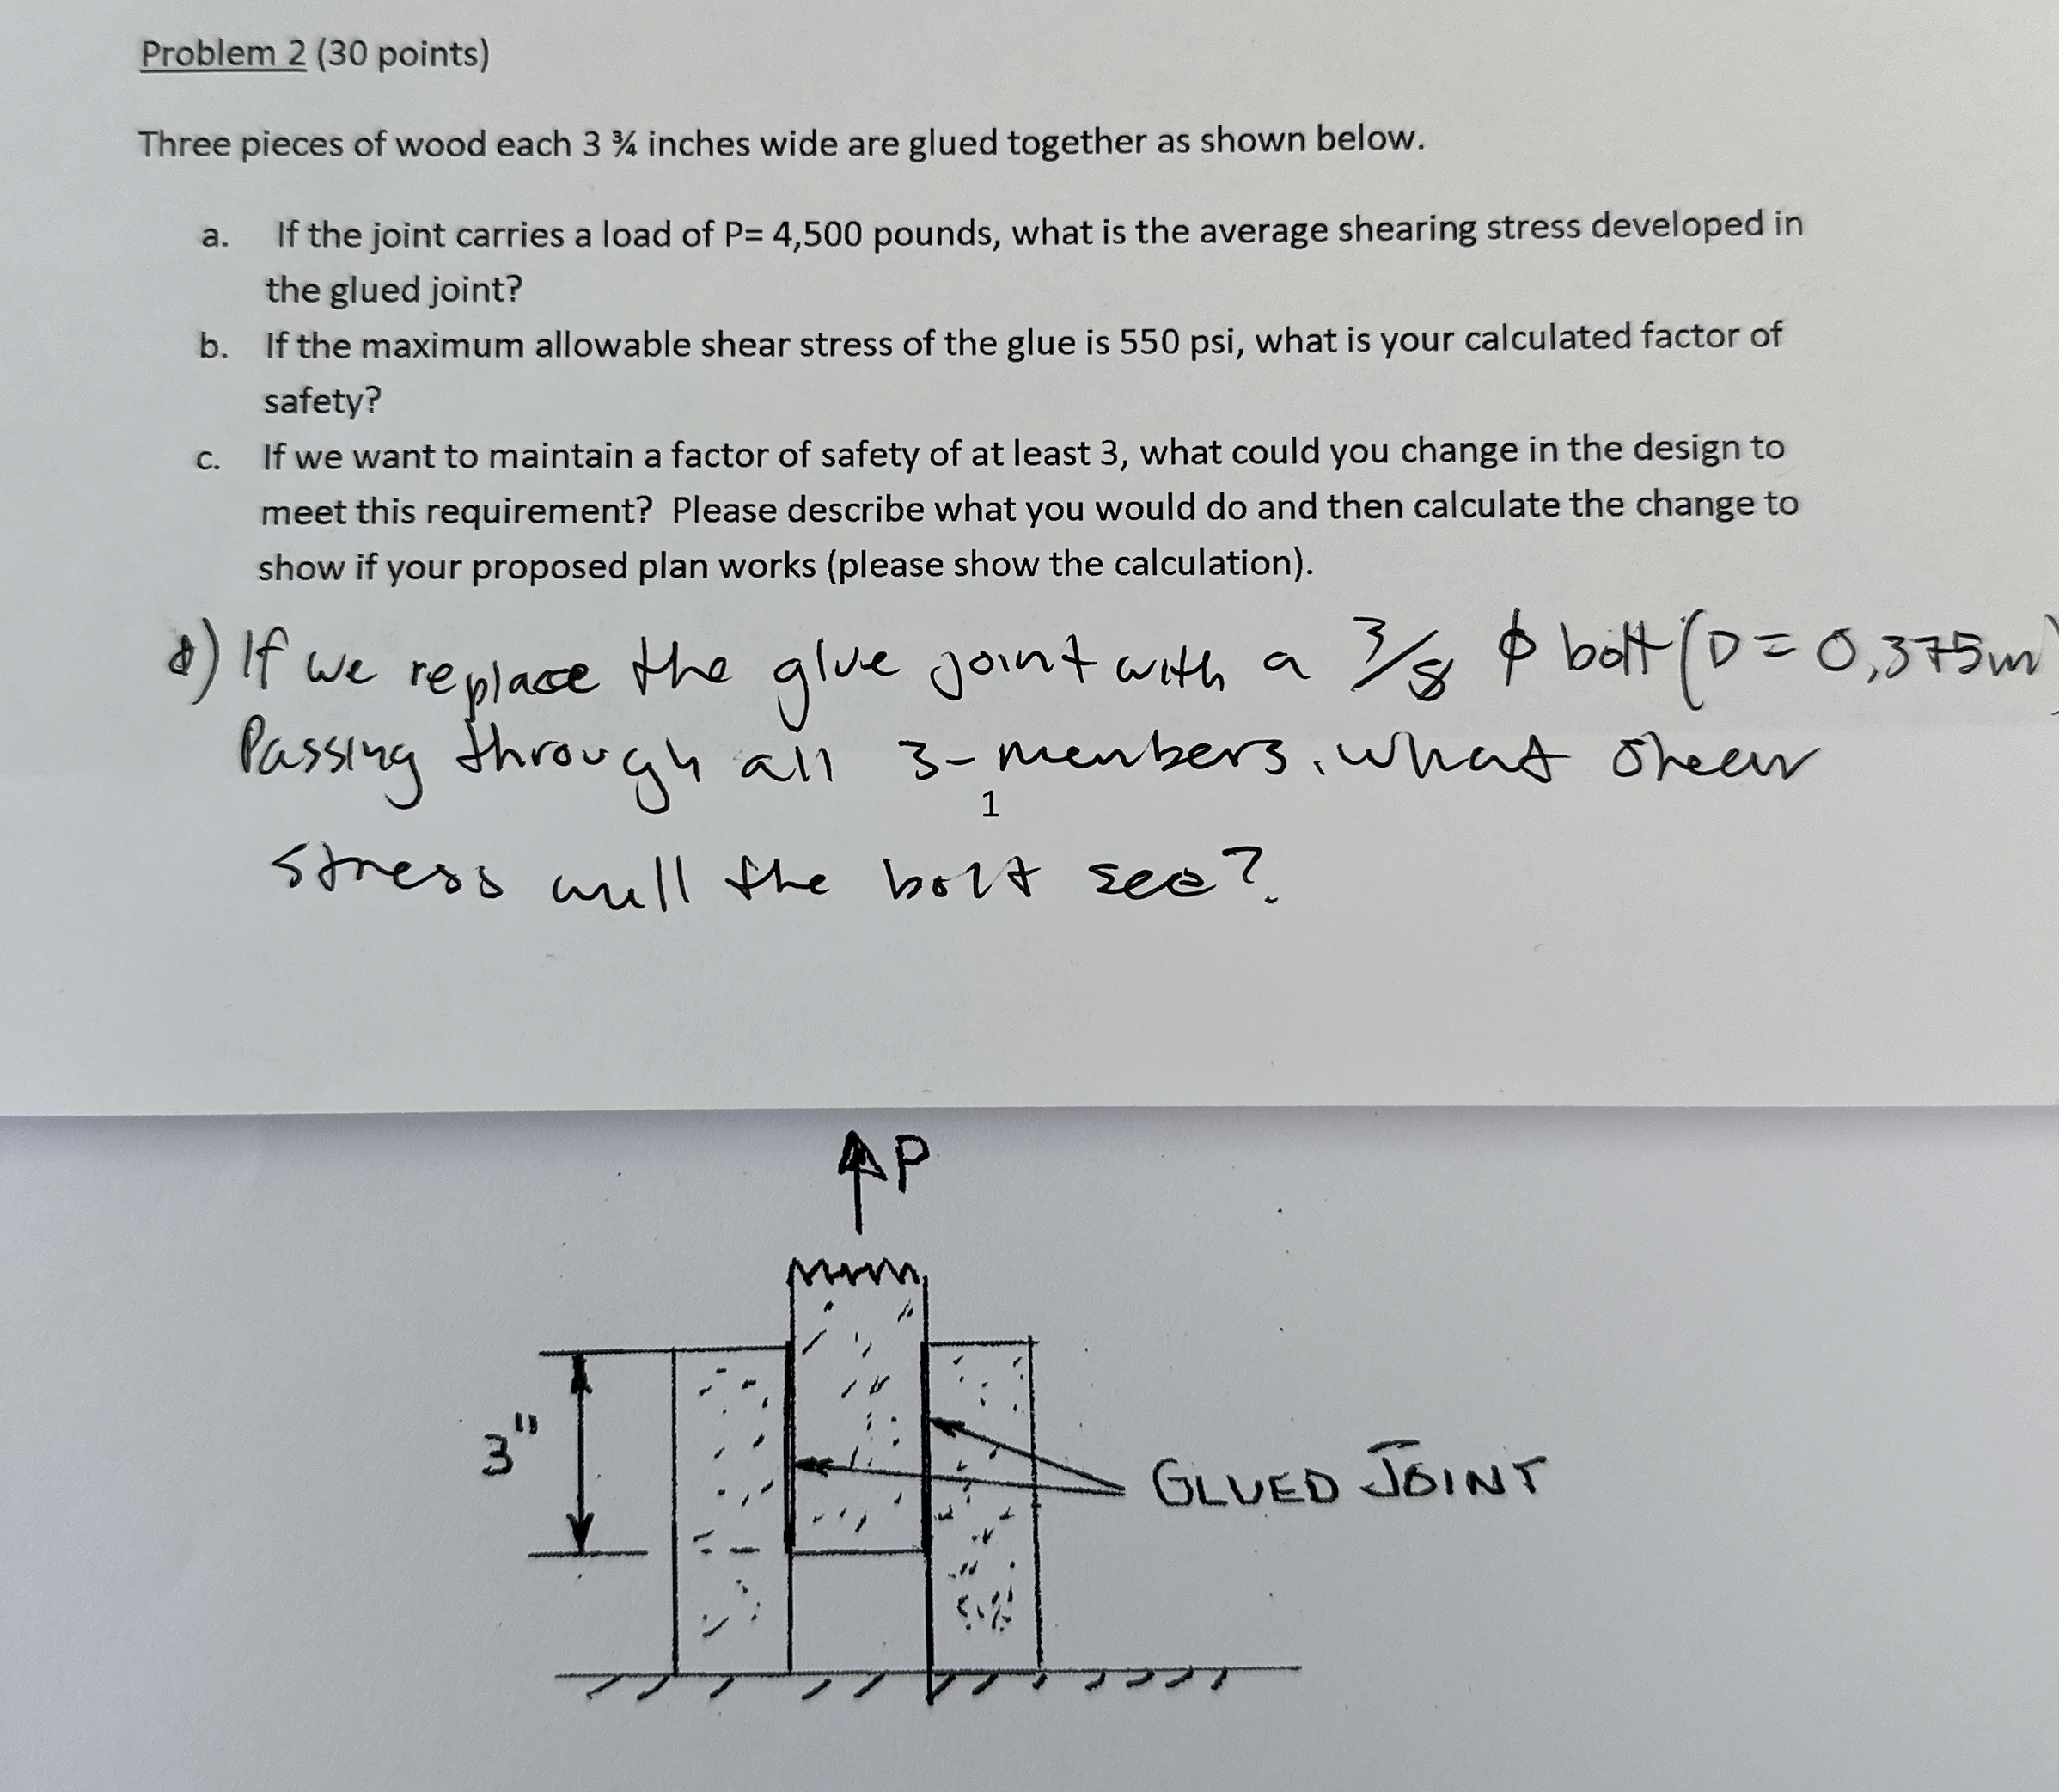 Problem 2 (30 points)
Three pieces of wood each 3 ¾ inches wide are glued together as shown below.
a. If the joint carries a load of P= 4,500 pounds, what is the average shearing stress developed in
the glued joint?
b. If the maximum allowable shear stress of the glue is 550 psi, what is your calculated factor of
safety?
c. If we want to maintain a factor of safety of at least 3, what could you change in the design to
meet this requirement? Please describe what you would do and then calculate the change to
show if your proposed plan works (please show the calculation).
d) If we replace the glue joint with a 3/8 ϕ bolt (D = 0,375in)
Passing through all 3-members, what shear
1
stress will the bolt see?
P
3"
GLUED JOINT